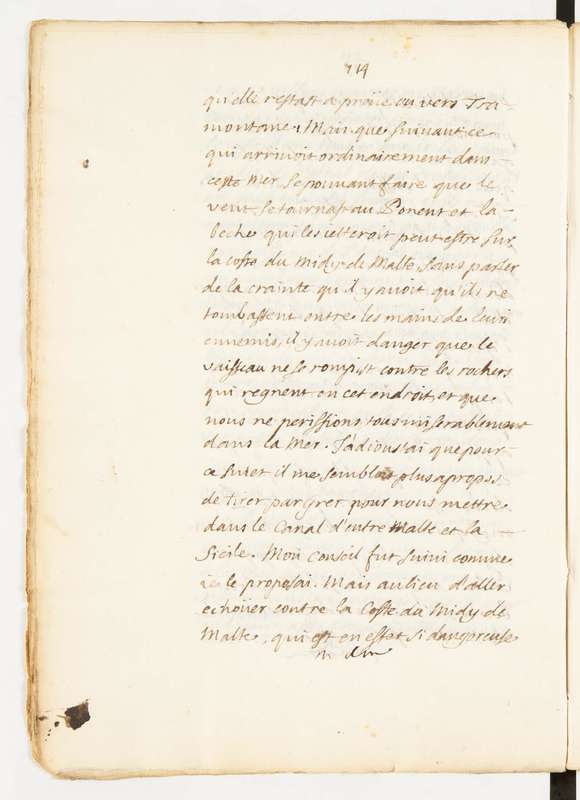 714
qu'elle restast a proüe ou vers Tra-
montane, Mais que suivant ce
qui arrivoit ordinairement dans
ceste Mer, se pouvant faire que le
vent se tournast au Ponent et la-
beche qui les ietteroit peut estre sur
la coste du Midy de Malte, sans parler
de la crainte qu'il y avoit qu'ils ne
tombassent entre les mains de leurs
ennemis, il y avoit danger que le
vaisseau ne se rompist contre les rochers
qui regnent en cet endroit, et que
nous ne perissions tous miserablement
dans la Mer. J'adioustai que pour
ce suiet il me sembloit plus a propos
de tirer par grec pour nous mettre
dans le Canal d'entre Malte et la
Sicile. Mon Conseil fut suivi comme
ie le proposai. Mais au lieu d'aller
echoüer contre la Coste du Midy de
Malte, qui est en effet si dangereuse